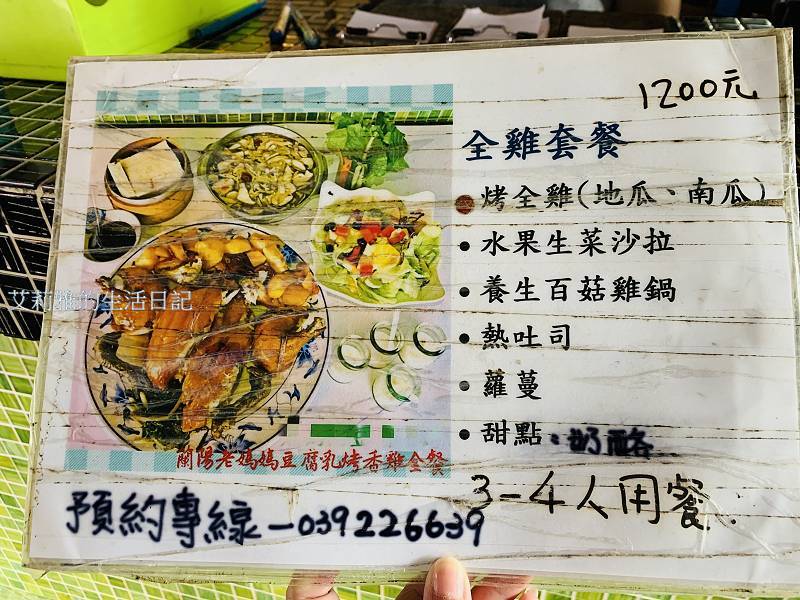 1200元
全雞套餐
烤全雞(地瓜、南瓜)
• 水果生菜沙拉
• 養生百菇雞鍋
• 熱吐司
• 蘿蔓
• 甜點：奶酪
3-4人用餐
蘭陽老媽媽豆腐乳烤香雞全餐
預約專線-039226639
艾莉雅的生活日記